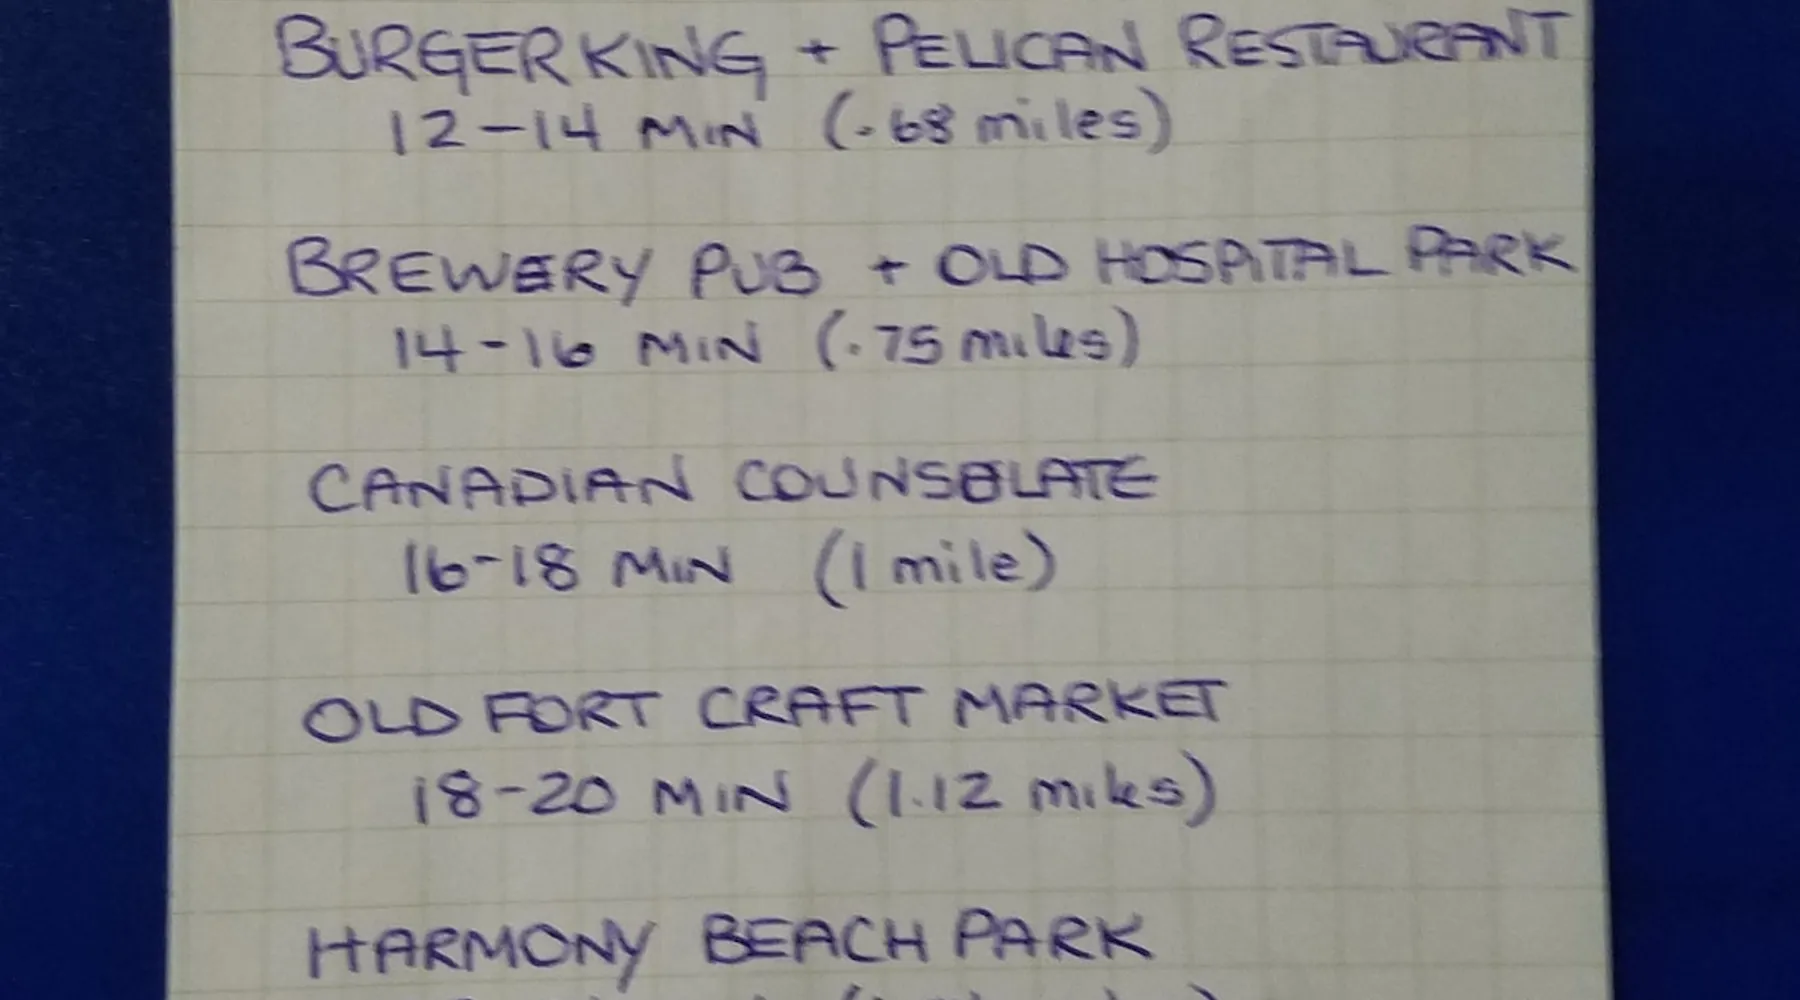 BURGER KING + PELICAN RESTAURANT
12-14 MIN (.68 miles)
BREWERY PUB + OLD HOSPITAL PARK
14-16 MIN (.75 miles)
CANADIAN COUNSOLATE
16-18 MIN (1 mile)
OLD FORT CRAFT MARKET
18-20 MIN (1.12 miles)
HARMONY BEACH PARK